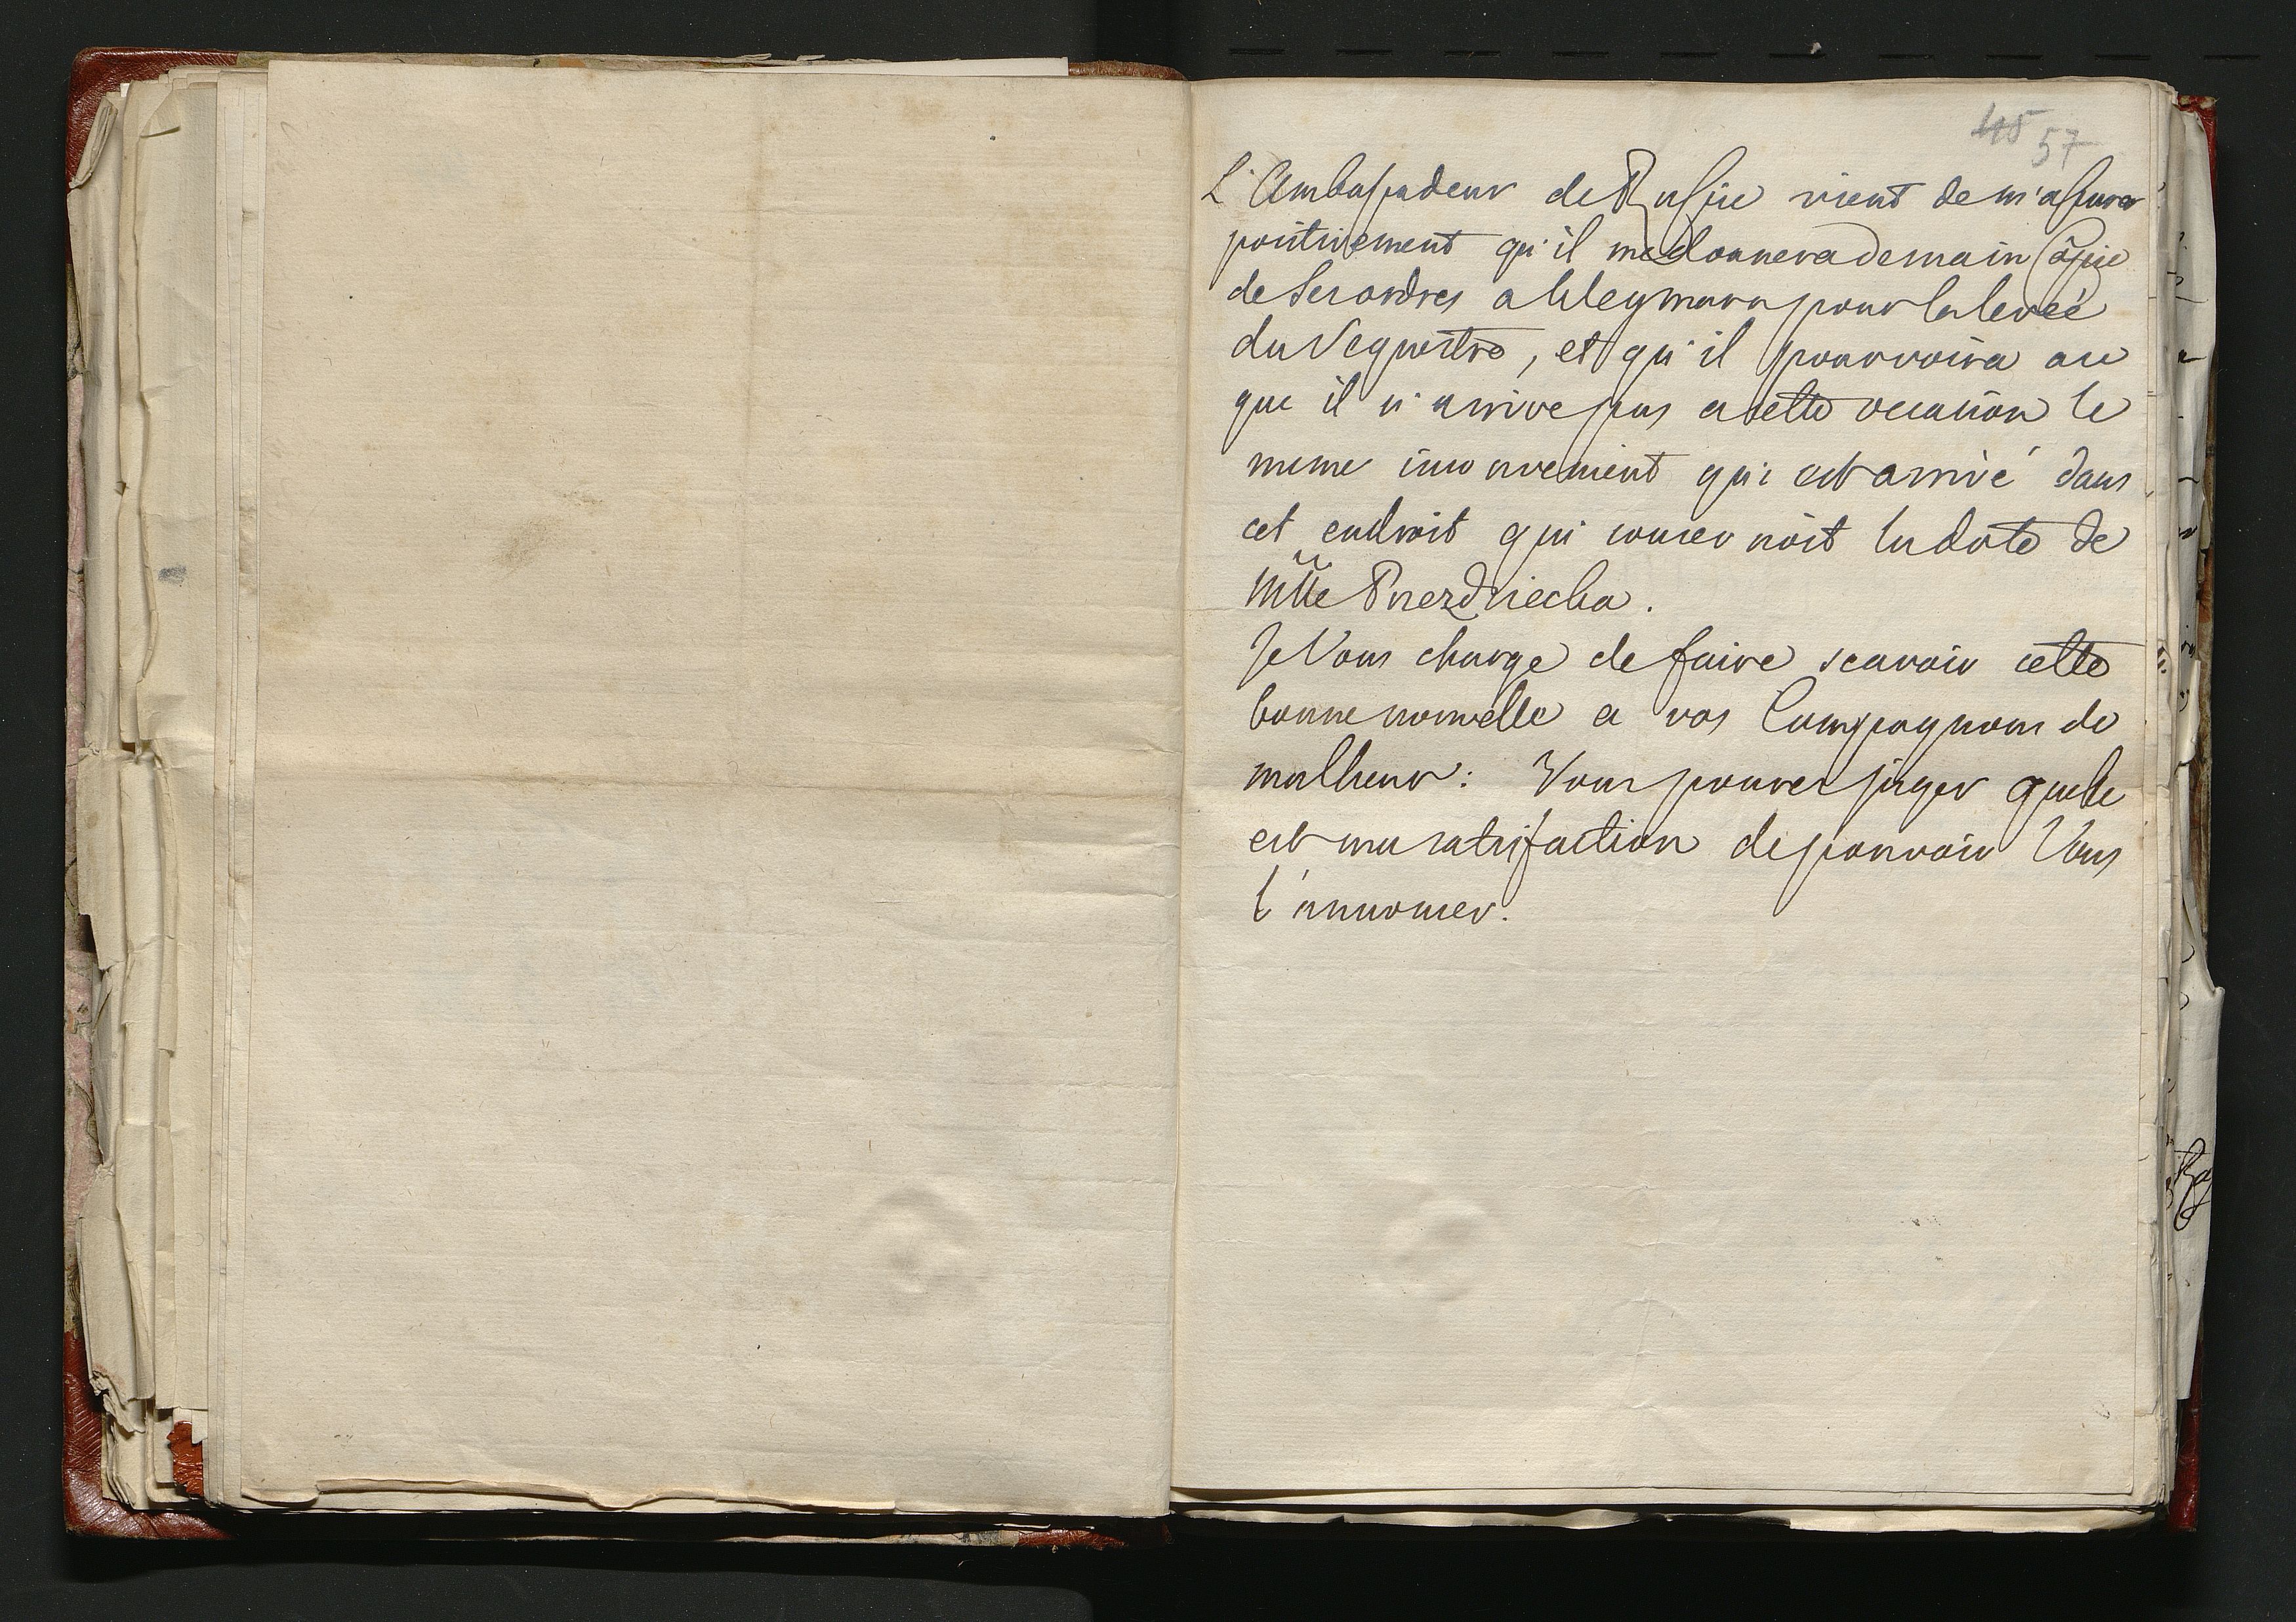 45 57
L'Ambassadeur de Russie vient de m'assurer
positivement qu'il me donnera demain Copie
de Ses ordres a Weymarn pour la levée
du Sequestre, et qu'il pourvoira a ce
que il n'arrive pas a cette occasion le
meme inconvenient qui est arrivé dans
cet endroit qui concernoit la dote de
Mlle Przezdziecka.
Je Vous charge de faire scavoir cette
bonne nouvelle a vos Compagnons de
malheur: Vous pouvez juger quelle
est ma satisfaction de pouvoir Vous
l'annoncer.